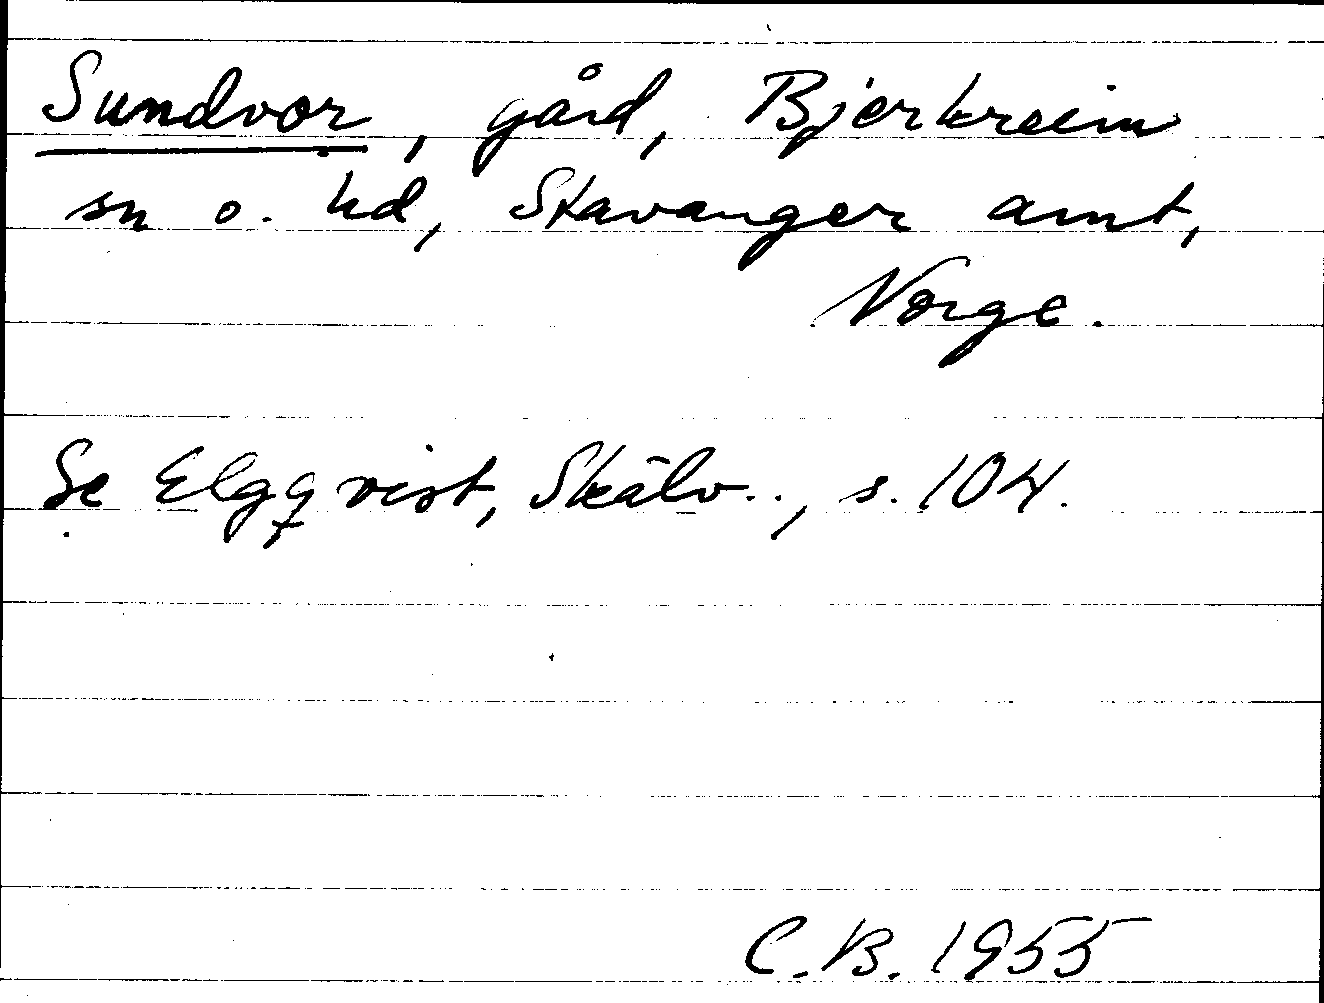 Sundvor, gård, Bjerkreim
sn o. hd, Stavanger amt,
Norge.
Se Elgqvist, Skälv.., s. 104.
C.B. 1955